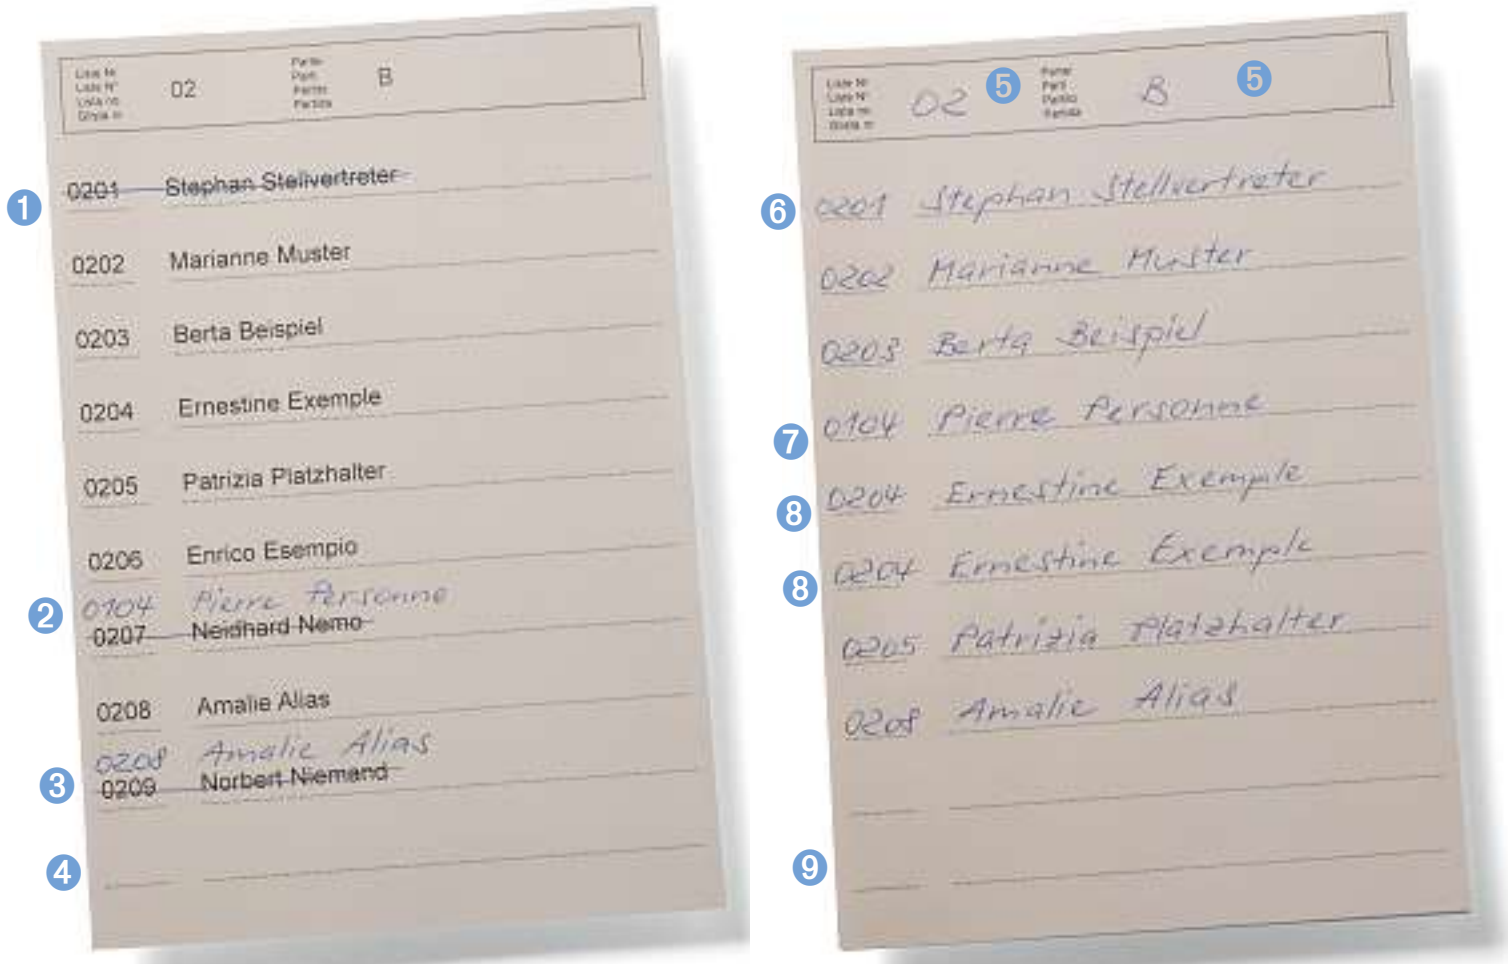 Liste Nr.
Liste N°
Lista no.
Glista nr.
02
Partei
Parti
Partito
Partida
B
1
0201 Stephan Stellvertreter
0202 Marianne Muster
0203 Berta Beispiel
0204 Ernestine Exemple
0205 Patrizia Platzhalter
0206 Enrico Esempio
2
0104 Pierre Personne
0207 Neidhard Nemo
0208 Amalie Alias
0208 Amalie Alias
3
0209 Norbert Niemand
4
Liste Nr.
Liste N°
Lista no.
Glista nr.
02
5
Partei
Parti
Partito
Partida
B
5
6
0201 Stephan Stellvertreter
0202 Marianne Muster
0203 Berta Beispiel
7
0104 Pierre Personne
8
0204 Ernestine Exemple
8
0204 Ernestine Exemple
0205 Patrizia Platzhalter
0208 Amalie Alias
9